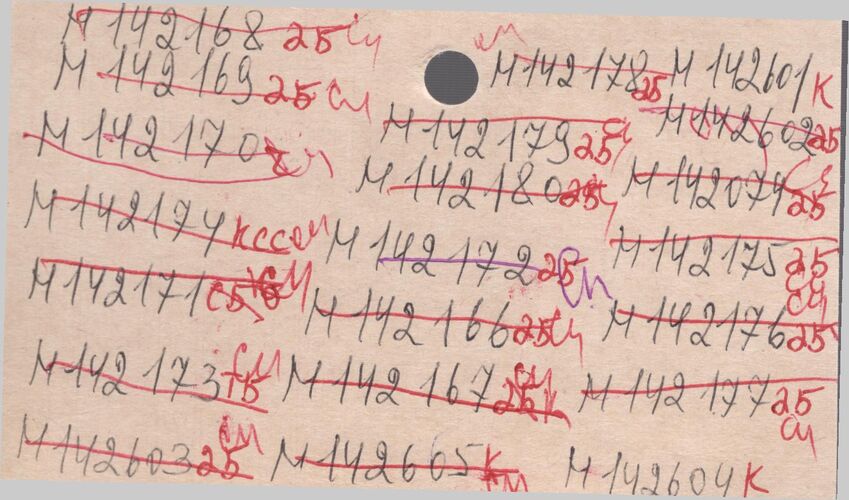 М 142168 25 см
М 142169 25 см
М 142170
М 142174 ксс см
М 142171
М 142173 см
М 142603 25 см
М 142178 25 см
М 142179 25 см
М 142180 25
М 142172 25 см
М 142166 25 см
М 142167 25 см
М 142605 к см
М 142601 к
М 142602 25
М 142074 25
М 142175 25 см
М 142176 25
М 142177 25 см
М 142604 к